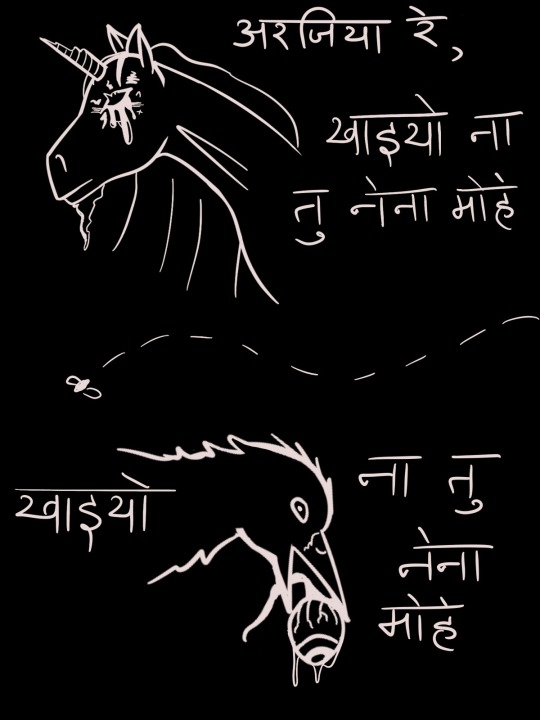 अरजिया रे,
खाइयो ना
तु नेना मोहे
खाइयो
ना तु
नेना
मोहे